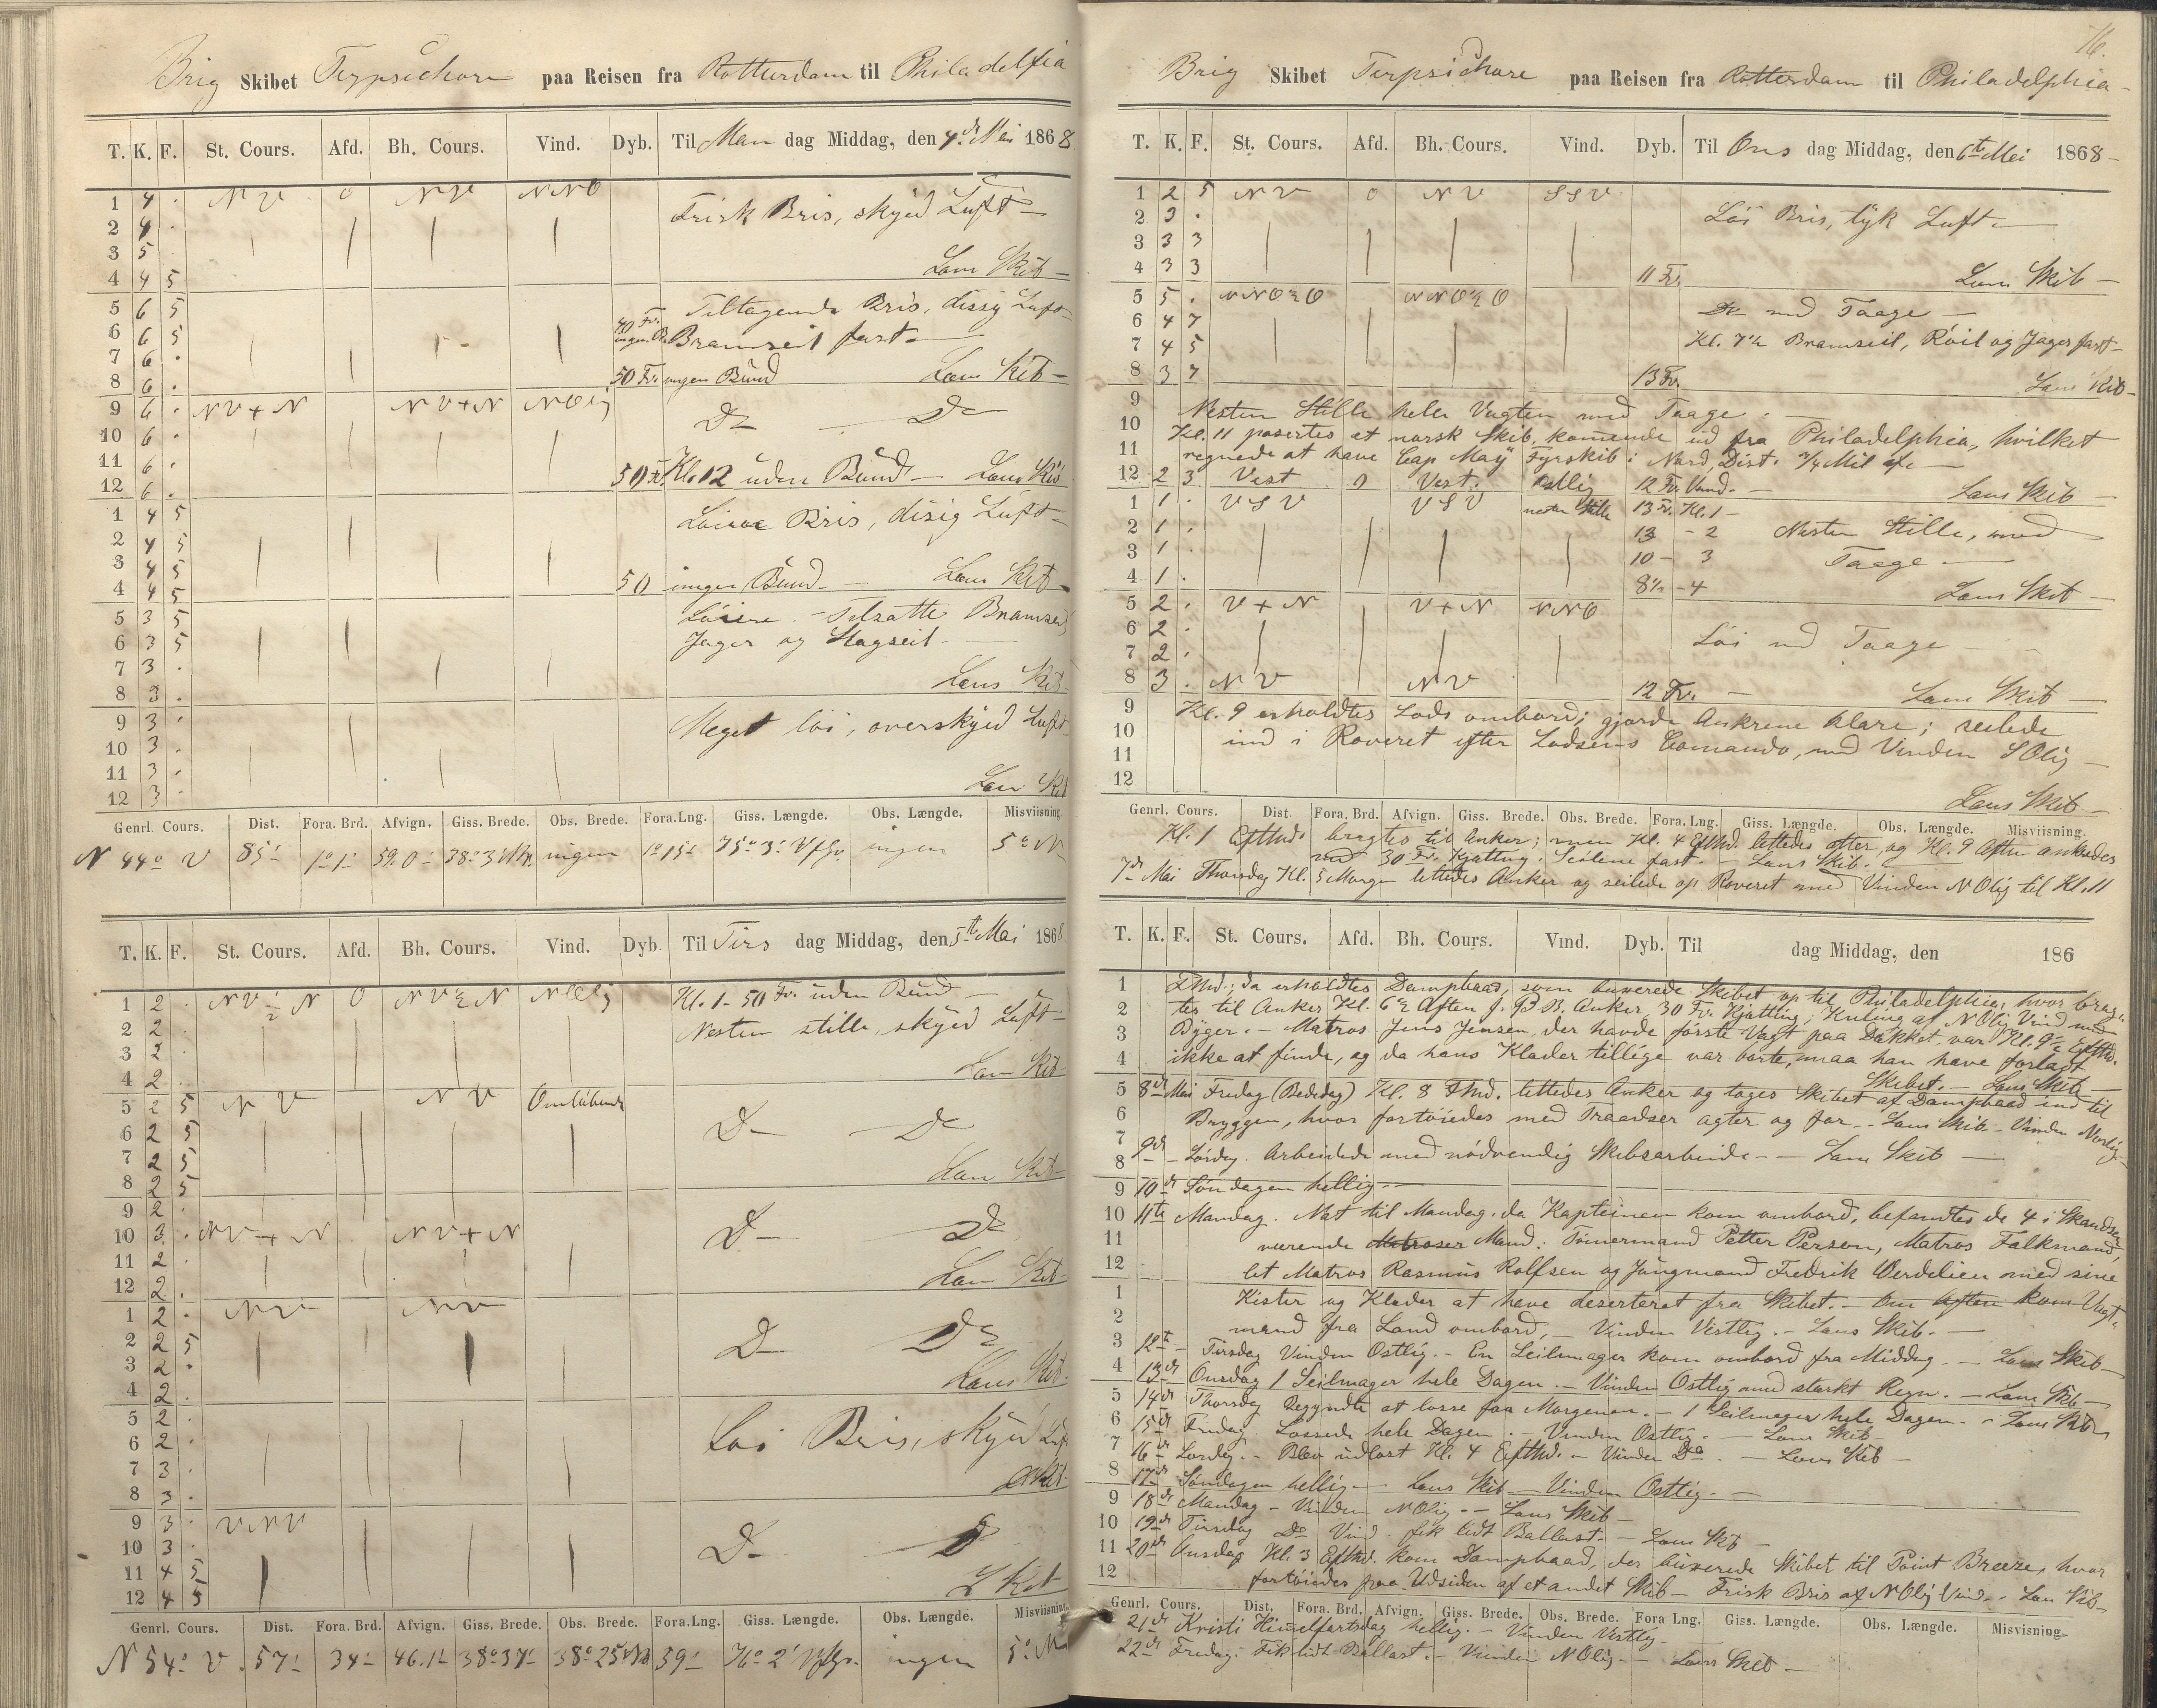 Brig Skibet Terpsichore paa Reisen fra Rotterdam til Philadelfia
T. K. F. St. Cours. Afd. Bh. Cours. Vind. Dyb. Til Man dag Middag, den 4de Mai 1868
1 4 . NV 0 NV NNO
2 4 . Frisk Bris, skyed Luft –
3 5 .
4 4 5 Læns Skib –
5 6 5 Tiltagende Bris, dissig Luft –
6 6 5 40 Fv. ingen B. Bramseil fast –
7 6 .
8 6 . 50 Fv. ingen Bund Læns Skib –
9 6 . NV+N NV+N NOlig Do Do
10 6 .
11 6 .
12 6 . 50 Fv. Kl. 12 uden Bund – Læns Skib
1 4 5 Löiere Bris, disig Luft –
2 4 5
3 4 5
4 4 5 50 ingen Bund – Læns Skib –
5 3 5 Löiere – Tilsatte Bramseil
6 3 5 Jager og Stagseil –
7 3 .
8 3 . Læns Skib
9 3 . Meget löi, overskyed Luft –
10 3 .
11 3 .
12 3 . Læns Skib
Genrl. Cours. Dist. Fora. Brd. Afvign. Giss. Brede. Obs. Brede. Fora. Lng. Giss. Længde. Obs. Længde. Misviisning.
N 44° V 85' 1° 1' 59.0' 38° 3' ingen 1° 15' 75° 3' ingen 5° N
T. K. F. St. Cours. Afd. Bh. Cours. Vind. Dyb. Til Tirs dag Middag, den 5te Mai 1868
1 2 . NV½N 0 NV½N NOlig Kl. 1 – 50 Fv. uden Bund –
2 2 . Nesten stille, skyed Luft –
3 2 .
4 2 . Læns Skib
5 2 5 NV NV Omlöbende
6 2 5 Do Do
7 2 5
8 2 5 Læns Skib
9 2 .
10 3 . NV+N NV+N Do Do
11 2 .
12 2 . Læns Skib
1 2 . NV NV
2 2 5 Do Do
3 2 .
4 2 . Læns Skib
5 2 .
6 2 . Löi Bris, skyed Luft
7 3 .
8 3 .
9 3 . VNV
10 3 . Do Do
11 4 5
12 4 5 L Skib
Genrl. Cours. Dist. Fora. Brd. Afvign. Giss. Brede. Obs. Brede. Fora. Lng. Giss. Længde. Obs. Længde. Misviisning.
N 54° V. 57' 34' 46.1' 38° 37' 38° 25' 59' 76° 2' ingen 5° N
76.
Brig Skibet Terpsichore paa Reisen fra Rotterdam til Philadelphia –
T. K. F. St. Cours. Afd. Bh. Cours. Vind. Dyb. Til Ons dag Middag, den 6te Mei 1868 –
1 2 5 NV 0 NV SSV
2 3 . Löi Bris, tyk Luft –
3 3 3
4 3 3 11 Fv. Læns Skib –
5 5 . NNO½O NNO½O Do med Taage –
6 4 7
7 4 5 Kl. 7½ Bramseil, Röil og Jager fast –
8 3 7 13 Fv. Læns Skib –
9 Nesten Stille hele Vagten med Taage. –
10 Kl. 11 pasertes et norsk Skib, kommende ud fra Philadelphia, hvilket
11 regnede at have Cap May Fyrskib i Nord, Dist. ¾ Mil af. –
12 2 3 Vest 0 Vest. Östlig 12 Fv. Vand. – Læns Skib –
1 1 . VSV VSV nesten Stille 13 Fv. Kl. 1 –
2 1 . 13 – 2 Nesten Stille, med
3 1 . 10 – 3 Taage –
4 1 . 8½ – 4 Læns Skib –
5 2 . V+N V+N NNO
6 2 . Löi med Taage –
7 2 .
8 3 . NV NV 12 Fv. – Læns Skib –
9 Kl. 9 erholdtes Lods ombord; gjorde Ankrene klare; seilede
10 ind i Reveret efter Lodsens Comando, med Vinden SOlig –
11
12 Læns Skib –
Genrl. Cours. Dist. Fora. Brd. Afvign. Giss. Brede. Obs. Brede. Fora. Lng. Giss. Længde. Obs. Længde. Misviisning.
Kl. 1 Efthd. bragtes til Anker; men Kl. 4 Efthd. lettedes atter og Kl. 9 Aften ankredes
med 30 Fv. Kjætting. Seilene fast. – Læns Skib. –
7de Mai Thorsdag Kl. 5 Morgen lettedes Anker og seilede op Reveret med Vinden NOlig til Kl. 11
T. K. F. St. Cours. Afd. Bh. Cours. Vind. Dyb. Til dag Middag, den 186
1 Fhd.; da erholdtes Dampbaad, som buxerede Skibet op til Philadelphia, hvor brag-
2 tes til Anker Kl. 6½ Aften f. B. B. Anker, 30 Fv. Kjætting; Kuling af NOlig Vind med
3 Byger. – Matros Jens Jensen, der havde förste Vagt paa Dækket, var Kl. 9½ Efthd.
4 ikke at finde, og da hans Klæder tillige var borte, maa han have forladt
Skibet. – Læns Skib –
5 8de Mai Fredag (Bededag) Kl. 8 Fhd. lettedes Anker og toges Skibet af Dampbaad ind til
6 Bryggen, hvor fortöiedes med Traadser agter og for. – Læns Skib. – Vinden Nordlig –
7
8 9de – Lördag. Arbeidede med nödvendig Skibsarbeide – – Læns Skib –
9 10de Söndagen hellig –
10 11te Mandag. Nat til Mandag, da Kapteinen kom ombord, befandtes de 4 i Skandsen
11 værende Matroser Mand: Tömermand Petter Person, Matros Falkmand,
12 let Matros Rasmus Rolfsen og Jungmand Fredrik Verdelien med sine
1 Kister og Klæder at have deserteret fra Skibet. – Om Aften kom Vagt-
2 mand fra Land ombord, – Vinden Vestlig. – Læns Skib. –
3 12te – Tirsdag Vinden Ostlig. – En Seilmager kom ombord fra Middag. – Læns Skib –
4 13de Onsdag 1 Seilmager hele Dagen. – Vinden Ostlig med stærkt Regn. – Læns Skib –
5 14de Thorsdag Begyndte at losse fra Morgenen. – 1 Seilmager hele Dagen. – Læns Skib
6 15de Fredag. Lossede hele Dagen. – Vinden Ostlig. – Læns Skib
7 16de Lördag. – Blev udlost Kl. 4 Efthd. – Vinden Do. – Læns Skib –
8 17de Söndagen hellig. – Læns Skib – Vinden Ostlig. –
9 18de Mandag – Vinden NOlig. – Læns Skib –
10 19de Tirsdag Do Vind. fik lidt Ballast. – Læns Skib –
11 20de Onsdag Kl. 3 Efthd. kom Dampbaad, der buxerede Skibet til Point Breeze, hvor
12 fortöiedes paa Udsiden af et andet Skib – Frisk Bris af NOlig Vind. – Læns Skib –
Genrl. Cours. Dist. Fora. Brd. Afvign. Giss. Brede. Obs. Brede. Fora Lng. Giss. Længde. Obs. Længde. Misvisning.
21de Kristi Himelfartsdag hellig. – Vinden Vestlig –
22de Fredag. Fik lidt Ballast. – Vinden NOlig – Læns Skib –